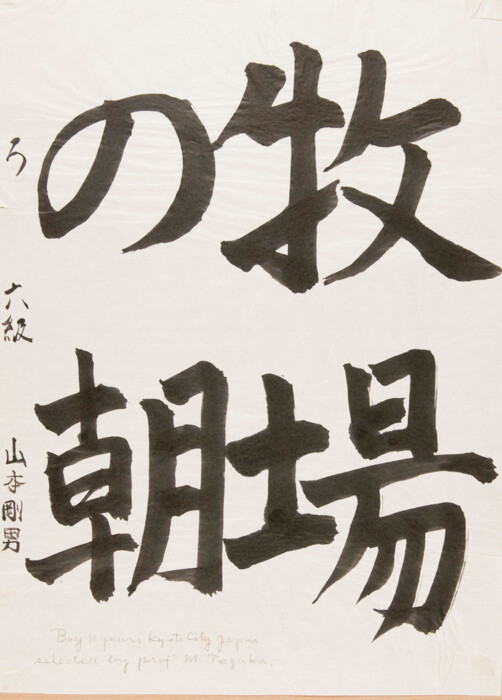 牧場
の朝
ろ 六級 山本剛男
Boy 11 years Kyoto City Japan
selected by prof M. Tezuka.